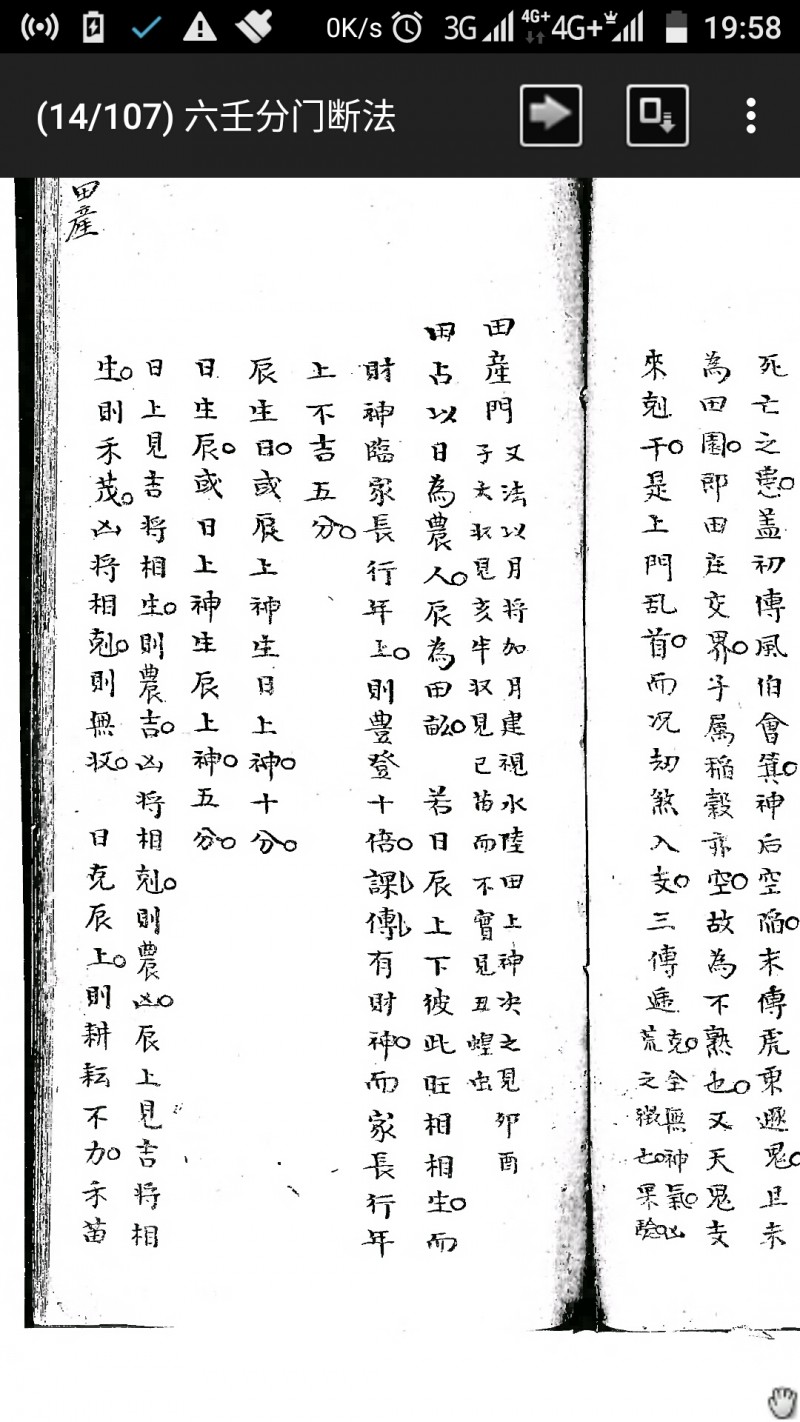 0K/s 3G 4G+ 4G+ 19:58
(14/107) 六壬分门断法
死亡之患蓋初傳風伯會箕神后空陷末傳虎乘遯鬼且未
為田園郎田在交界子属稻穀亦空故為不熟也又天鬼支
來剋干是上門乱首而况劫煞入支三傳逓克全無神氣凶
荒之徵也果驗
田産門又法以月將加月建視水陸田上神决之見卯酉
子大收見亥半收見巳苗而不實見丑蝗虫
田占以日為農人辰為田畝 若日辰上下彼此旺相相生而
財神臨家長行年上則豊登十倍課傳有財神而家長行年
上不吉五分
辰生日或辰上神生日上神十分
日生辰或日上神生辰上神五分
日上見吉将相生則農吉凶将相剋則農凶辰上見吉将相
生則禾茂凶将相剋則無收 日克辰上則耕耘不力禾苗
田産